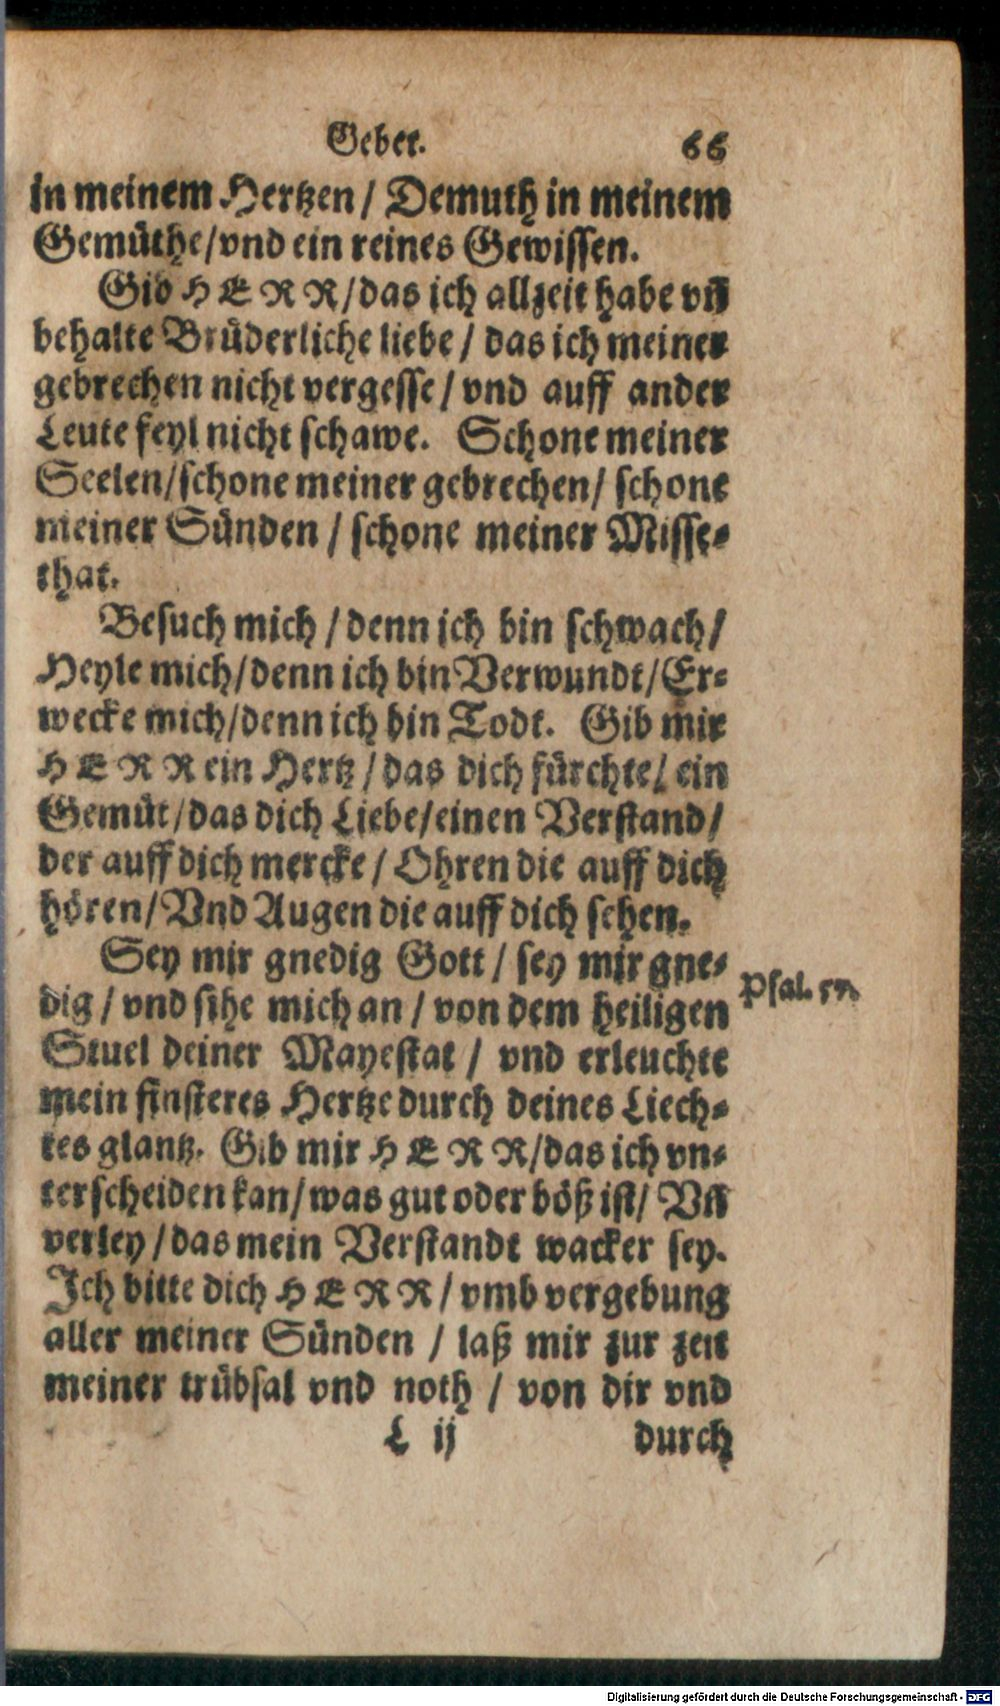 Gebet. 66
in meinem Hertzen / Demuth in meinem
Gemüthe/vnd ein reines Gewissen.
Gib HERR/das ich allzeit habe vñ
behalte Brüderliche liebe / das ich meiner
gebrechen nicht vergesse / vnd auff ander
Leute feyl nicht schawe. Schone meiner
Seelen/schone meiner gebrechen/ schone
meiner Sünden / schone meiner Misse-
that.
Besuch mich / denn ich bin schwach/
Heyle mich/denn ich bin Verwundt/Er-
wecke mich/denn ich bin Todt. Gib mir
HERR ein Hertz / das dich fürchte/ ein
Gemüt/das dich Liebe/einen Verstand/
der auff dich mercke / Ohren die auff dich
hören/Vnd Augen die auff dich sehen.
Sey mir gnedig Gott / sey mir gne-
dig / vnd sihe mich an / von dem heiligen
Psal.
Stuel deiner Mayestat / vnd erleuchte
mein finsteres Hertze durch deines Liech-
tes glantz. Gib mir HERR/das ich vn-
terscheiden kan/was gut oder böß ist/ Vñ
verley / das mein Verstandt wacker sey.
Ich bitte dich HERR / vmb vergebung
aller meiner Sünden / laß mir zur zeit
meiner trübsal vnd noth / von dir vnd
L ij durch
Digitalisierung gefördert durch die Deutsche Forschungsgemeinschaft - DFG